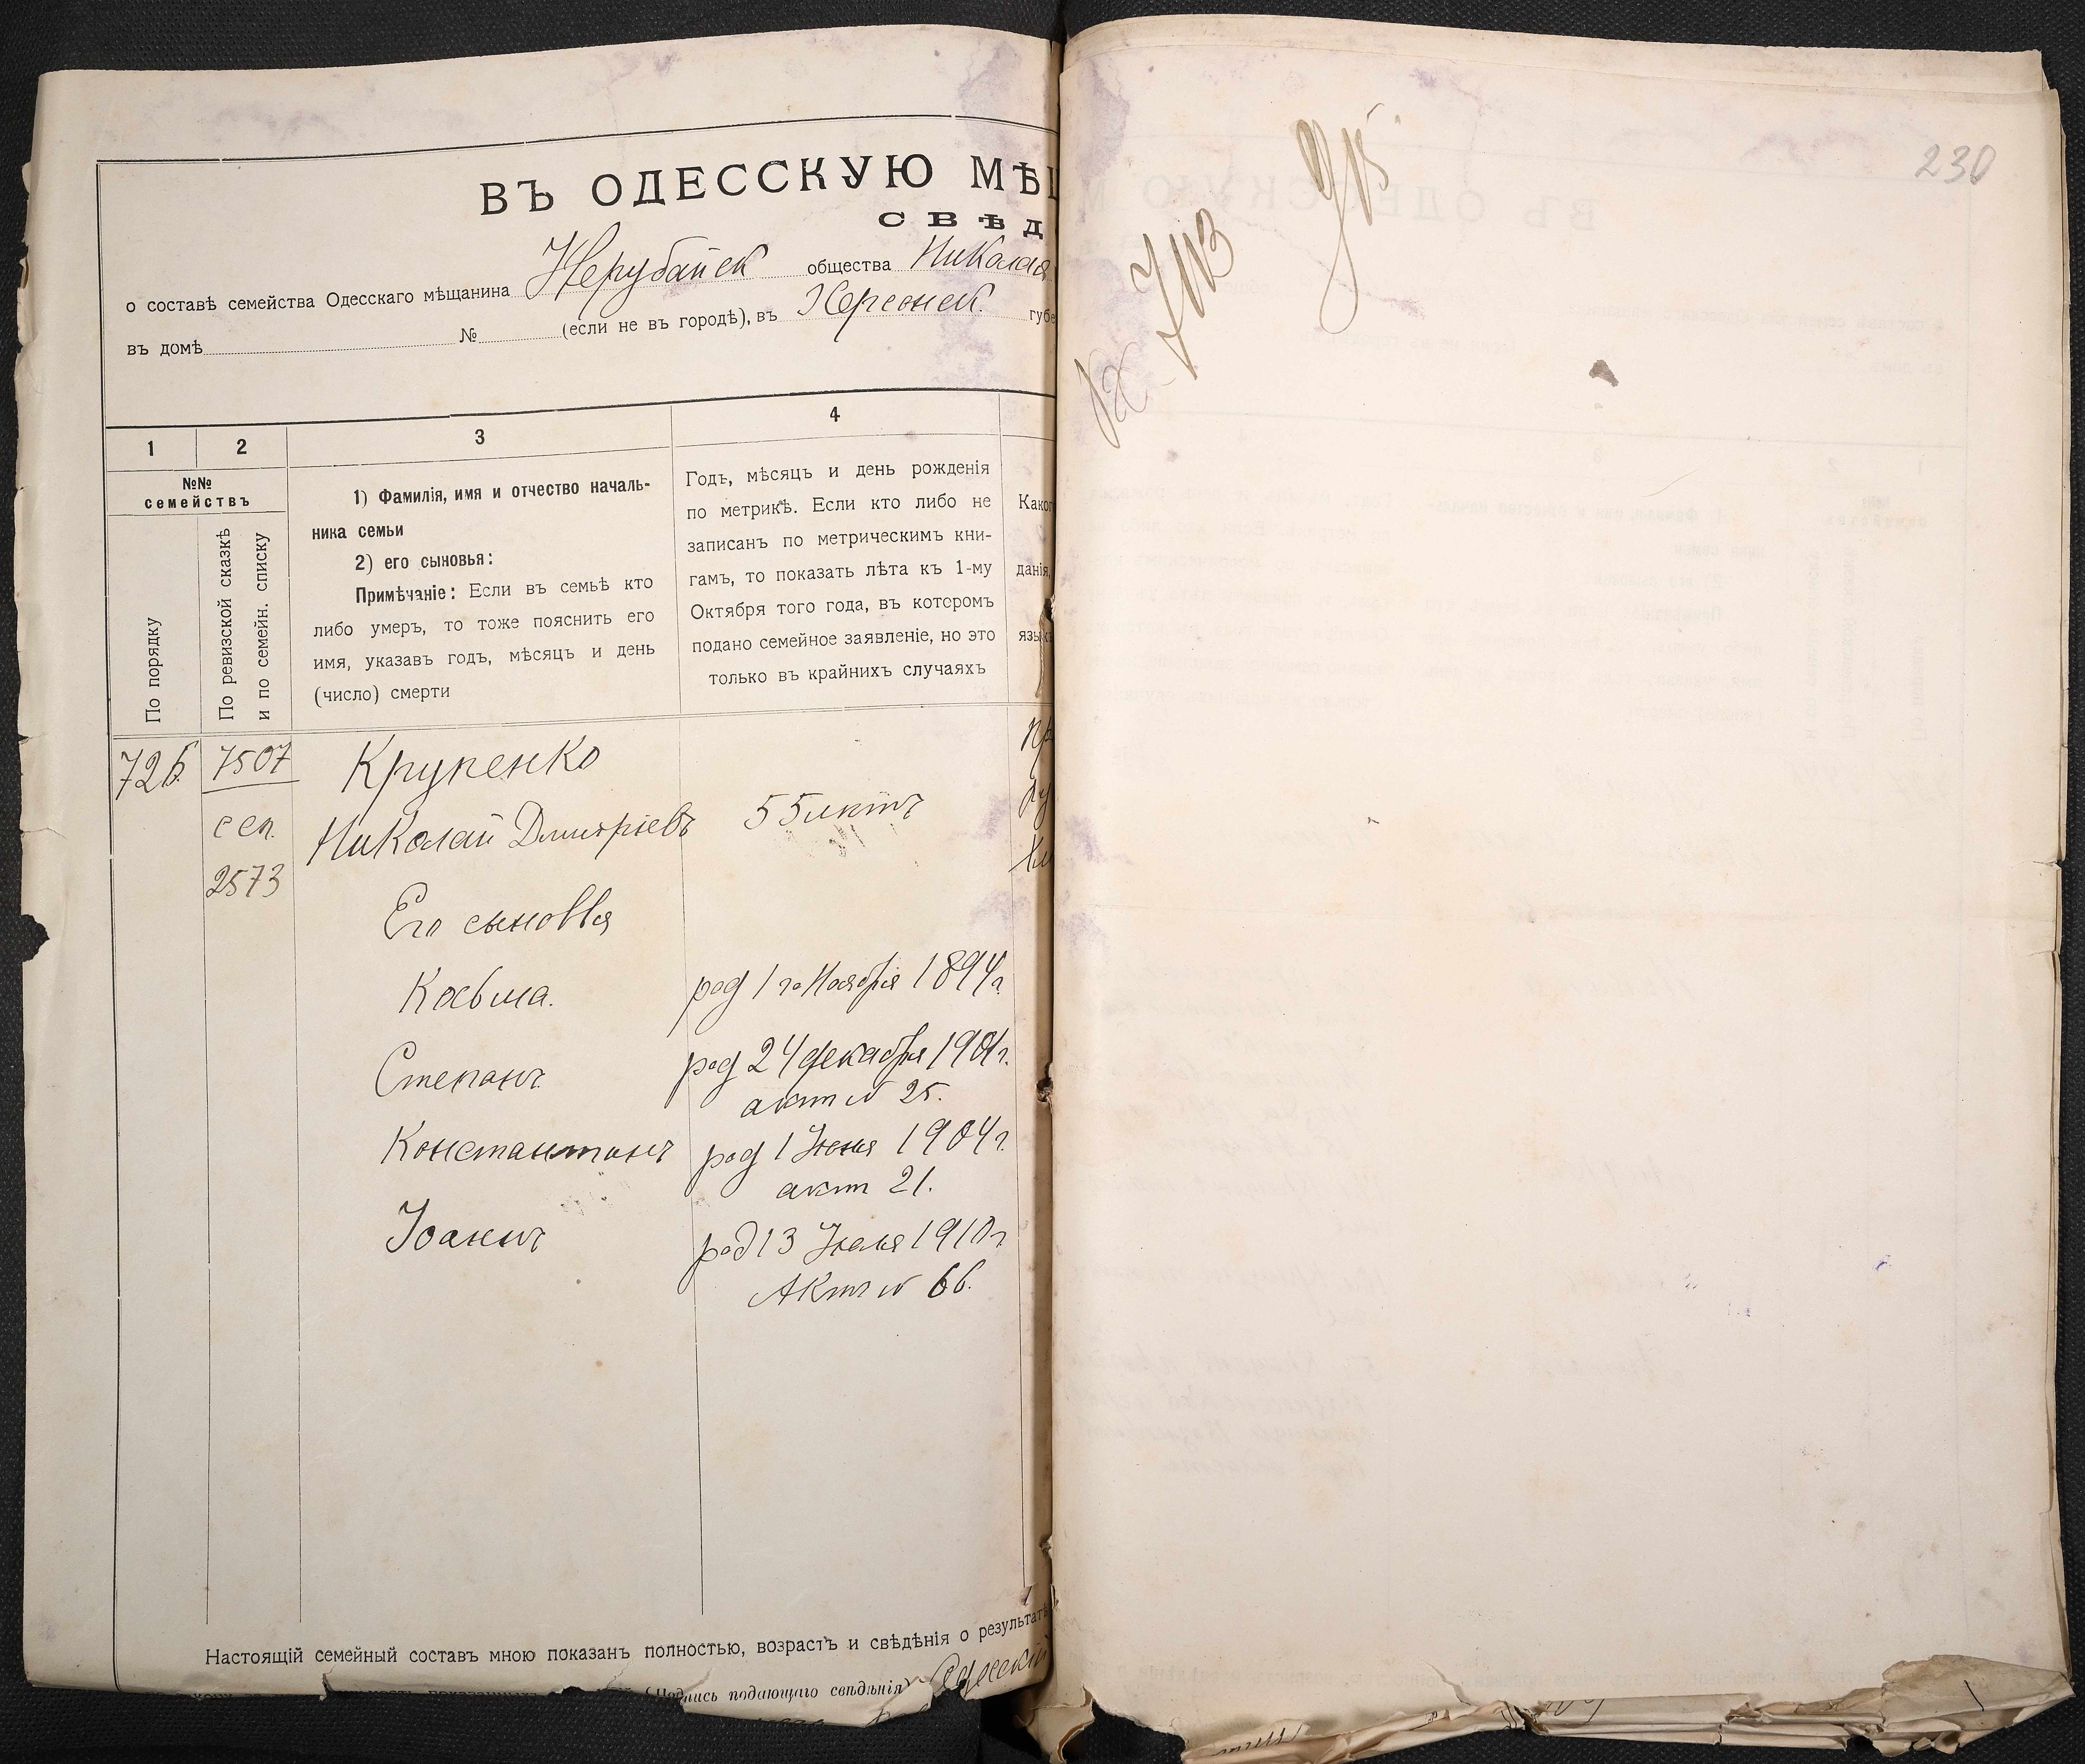 ВЪ ОДЕССКУЮ МѢЩ
СВѢД
о составѣ семейства Одесскаго мѣщанина Нерубайск общества Николая
въ домѣ № (если не въ городѣ), въ Херсонск. губе
1 2 3 4
№№
семействъ
По порядку
По ревизской сказкѣ
и по семейн. списку
1) Фамилія, имя и отчество началь-
ника семьи
2) его сыновья:
Примѣчаніе: Если въ семьѣ кто
либо умеръ, то тоже пояснить его
имя, указавъ годъ, мѣсяцъ и день
(число) смерти
Годъ, мѣсяцъ и день рожденія
по метрикѣ. Если кто либо не
записанъ по метрическимъ кни-
гамъ, то показать лѣта къ 1-му
Октября того года, въ которомъ
подано семейное заявленіе, но это
только въ крайнихъ случаяхъ
Каког
данія,
язык
726. 7507 Крупенко
с сп.
2573
Николай Дмитріевъ 55 лѣтъ
Его сыновья
Косьма. род 1 го Ноября 1894 г.
Степанъ род 24 декабря 1901 г.
актъ № 25.
Константинъ род 1 Іюня 1904 г.
актъ 21.
Іоаннъ род 13 Іюля 1910 г.
Актъ № 66.
Настоящій семейный составъ мною показанъ полностью, возрастъ и свѣдѣнія о результатѣ
(Подпись подающаго свѣдѣнія) Одесскій
230